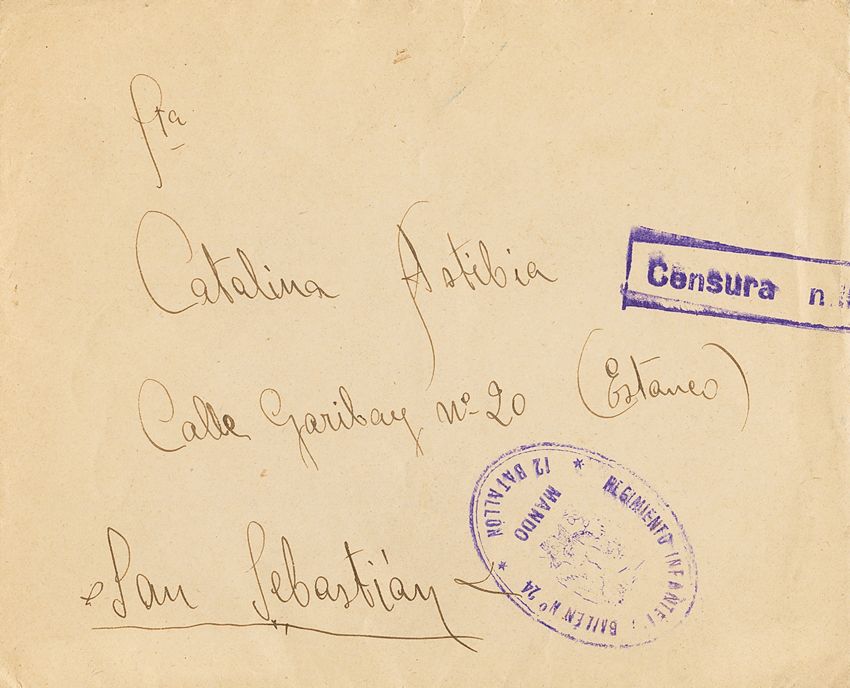 Sta
Catalina Astibia
Censura
Calle Garibay nº 20 (Estanco)
San Sebastián
REGIMIENTO INFANTERÍA BAILÉN Nº 24
12 BATALLÓN
MANDO